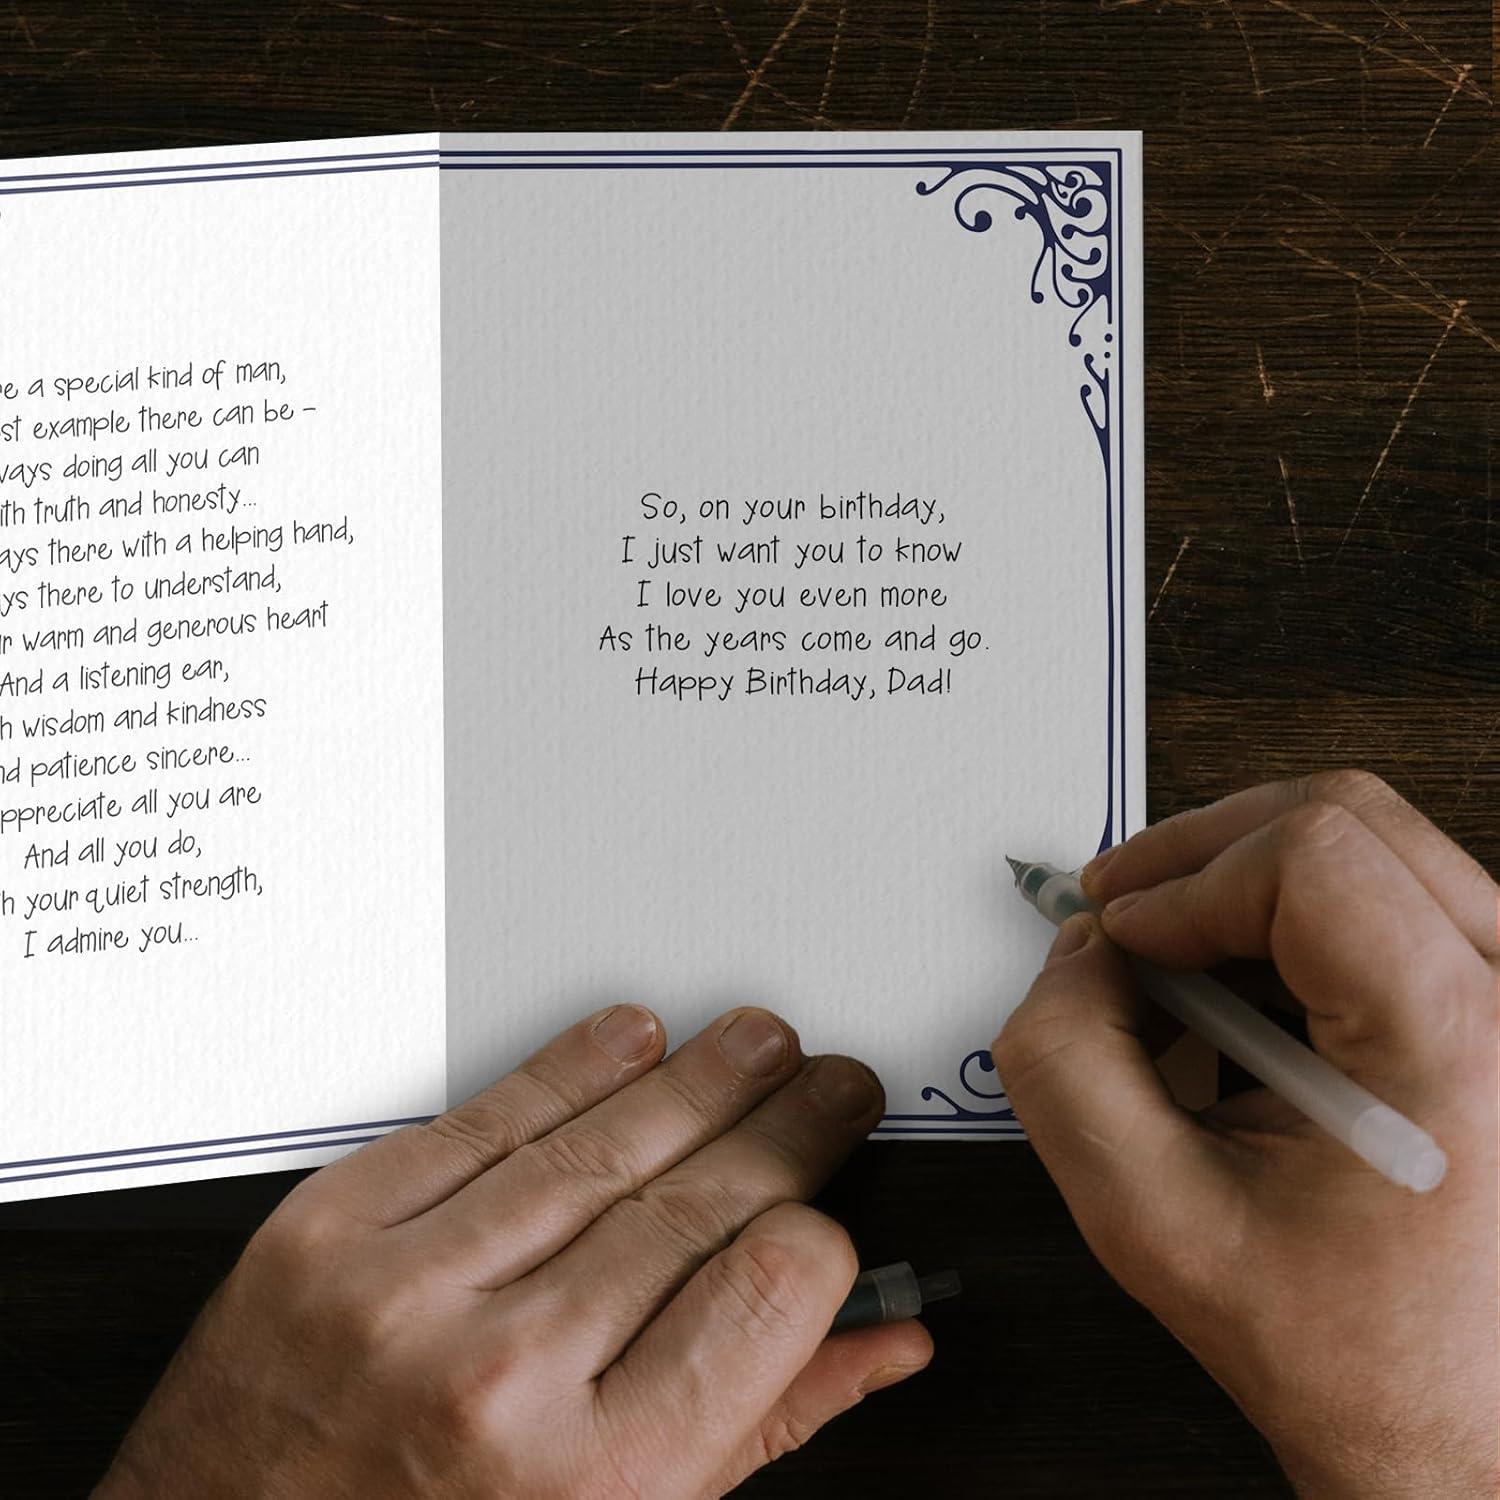 a special kind of man,
example there can be –
doing all you can
truth and honesty...
there with a helping hand,
there to understand,
warm and generous heart
And a listening ear,
wisdom and kindness
patience sincere...
all you are
And all you do,
your quiet strength,
I admire you...
So, on your birthday,
I just want you to know
I love you even more
As the years come and go.
Happy Birthday, Dad!